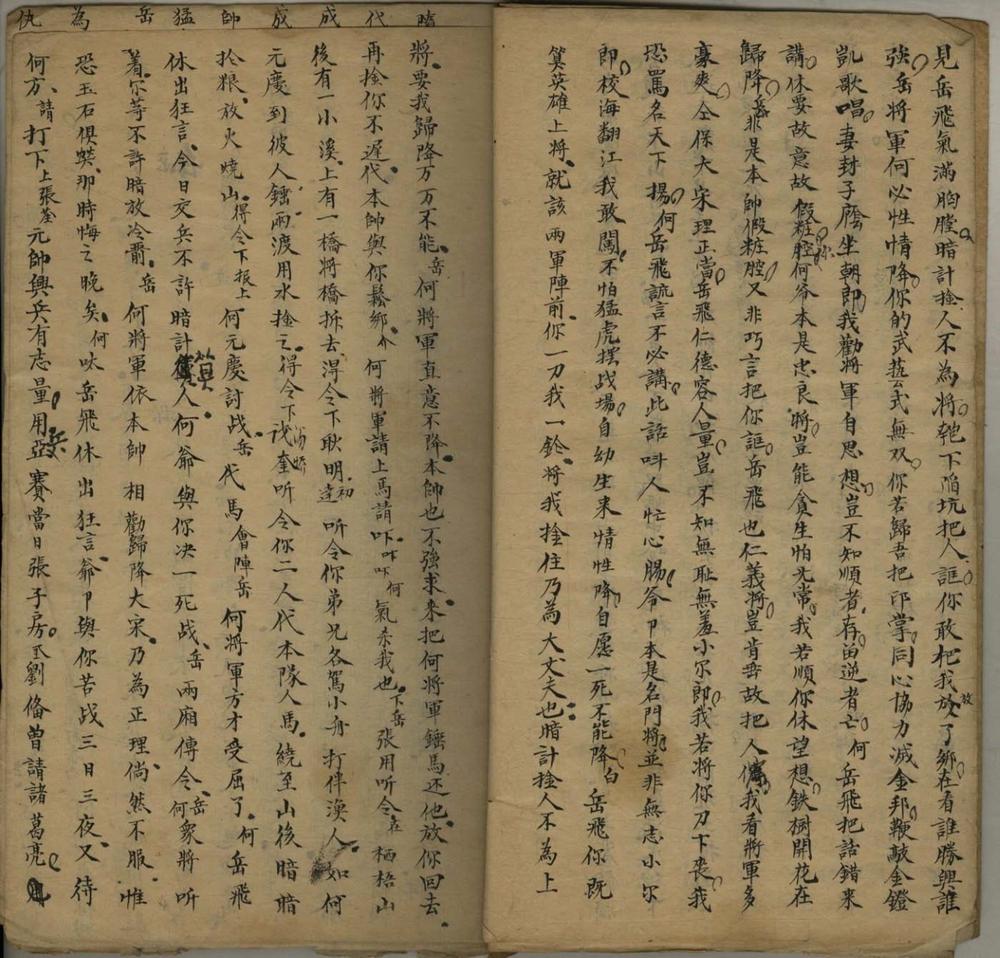 見岳飛氣滿胸膛暗計捨人不為將𡍼下陷坑把人誆你敢把我放了鄉在看誰勝與誰
強岳將軍何必性情降你的武芸武無双你若歸吾把印掌同心協力滅金邦鞭敲金鐙
凱歌唱妻封子廕坐朝郎我勸將軍自思想豈不知順者存留逆者亡何岳飛把話錯來
講休要故意故假粧腔何爷本是忠良將豈能貪生怕无常我若順你休望想鉄樹開花在
歸降岳非是本帥假粧腔又非巧言把你誆岳飛也仁義將豈肯無故把人傷我看將軍多
豪爽仝保大宋理正當岳飛仁德容人量豈不知無恥無羞小尔郎我若將你刀下喪我
恐罵名天下揚何岳飛謊言不必講此話叫人忙心腸爷卩本是名門將並非無志小尔
郎校海翻江我敢闖不怕猛虎摆战場自幼生来情性降自愿一死不能降白岳飛你既
算英雄上將就該兩軍陣前你一刀我一鎗將我捨住乃為大丈夫也暗計捨人不為上
將要我歸降万万不能岳何將軍直意不降本帥也不強求来把何將軍錘馬还他放你回去
再捨你不遲代本帥與你鬆鄉介何將軍請上馬請吓吓吓何氣杀我也下岳張用听令在栖梧山
後有一小溪上有一橋將橋拆去淂令下耿明初達听令你弟兄各駕小舟打伴漁人如何
元慶到彼人錘兩渡用水捨之得令下湯懷奎听令你二人代本隊人馬繞至山後暗暗
於粮放火燒山得令下报上何元慶討战岳代馬會陣岳何將軍方才受屈了何岳飛
休出狂言今日交兵不許暗計算人何爺與你决一死战岳兩廂傳令何岳衆將听
着尔等不許暗放冷箭岳何將軍依本帥相勸歸降大宋乃為正理倘然不服惟
恐玉石俱焚那時悔之晚矣何呔岳飛休出狂言爺卩與你苦战三日三夜又待
何方請打下上張荃元帥興兵有志量用兵賽當日張子房至劉俻曾請諸葛亮
暗代成成帥猛岳為仇